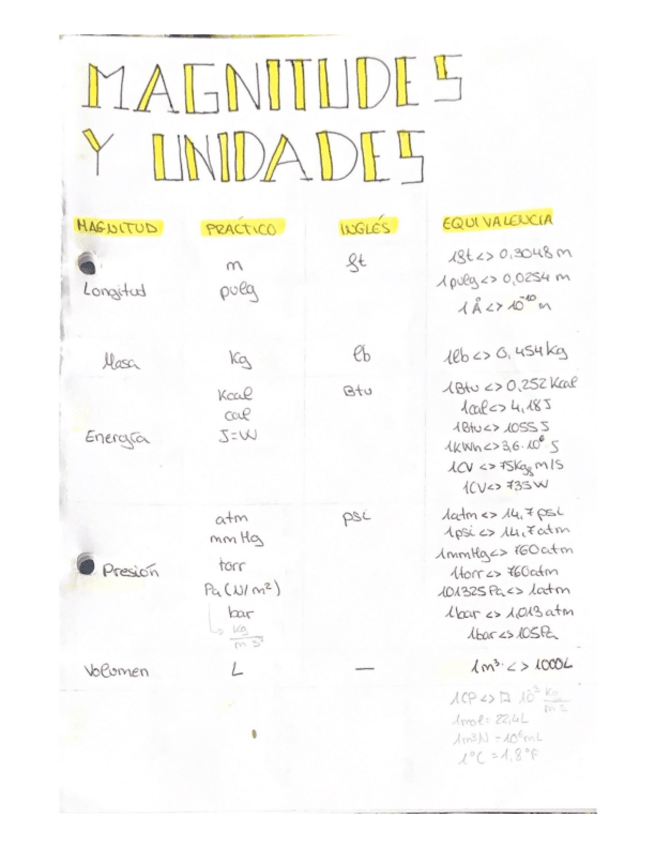 MAGNITUDES
Y UNIDADES
MAGNITUD PRÁCTICO INGLÉS EQUIVALENCIA
Longitud
m
pulg
ft
1ft <> 0,3048 m
1pulg <> 0,0254 m
1 Å <> 10⁻¹⁰ m
Masa
Kg
lb
1lb <> 0,454 kg
Energía
Kcal
cal
J=W
Btu
1Btu <> 0,252 Kcal
1cal <> 4,18 J
1Btu <> 1055 J
1kWh <> 3,6·10⁶ J
1CV <> 75Kg m/s
1CV <> 735 W
Presión
atm
mmHg
torr
Pa (N/m²)
bar
kg
psi
1atm <> 14,7 psi
1psi <> 14,7 atm
1mmHg <> 760 atm
1torr <> 760 atm
101325 Pa <> 1atm
1bar <> 1,013 atm
1bar <> 105 Pa
Volumen
L
—
1m³ <> 1000L
1CP <> 10³ Kg
1mol = 22,4L
1m³N = 10⁶mL
1°C = 1,8°F